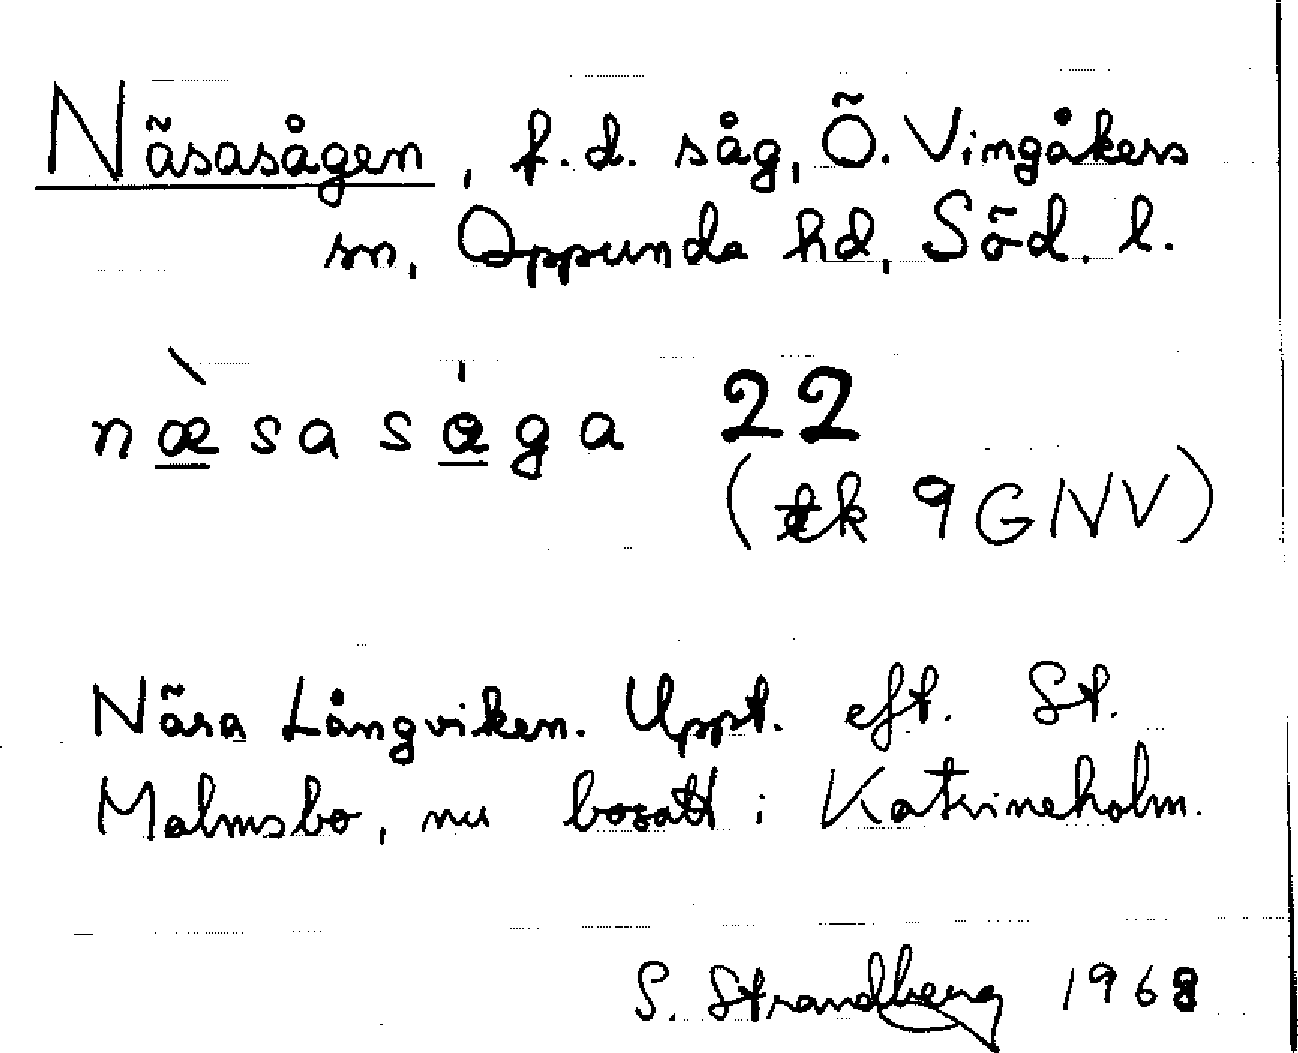 Näsasågen, f.d. såg, Ö. Vingåkers
sn, Oppunda hd, Söd. l.
næ̀sasåga 22
(ek 9GNV)
Nära Långviken. Uppt. eft. St.
Malmsbo, nu bosatt i Katrineholm.
S. Strandberg 1968